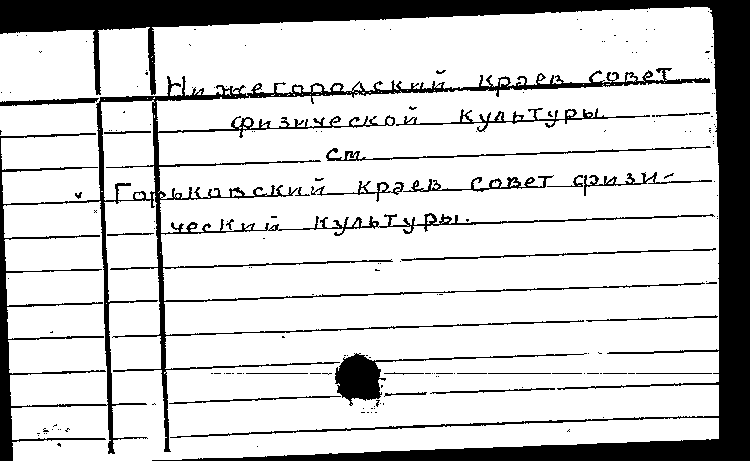 Нижегородский краев совет
физической культуры
см.
Горьковский краев совет физи-
ческий культуры.